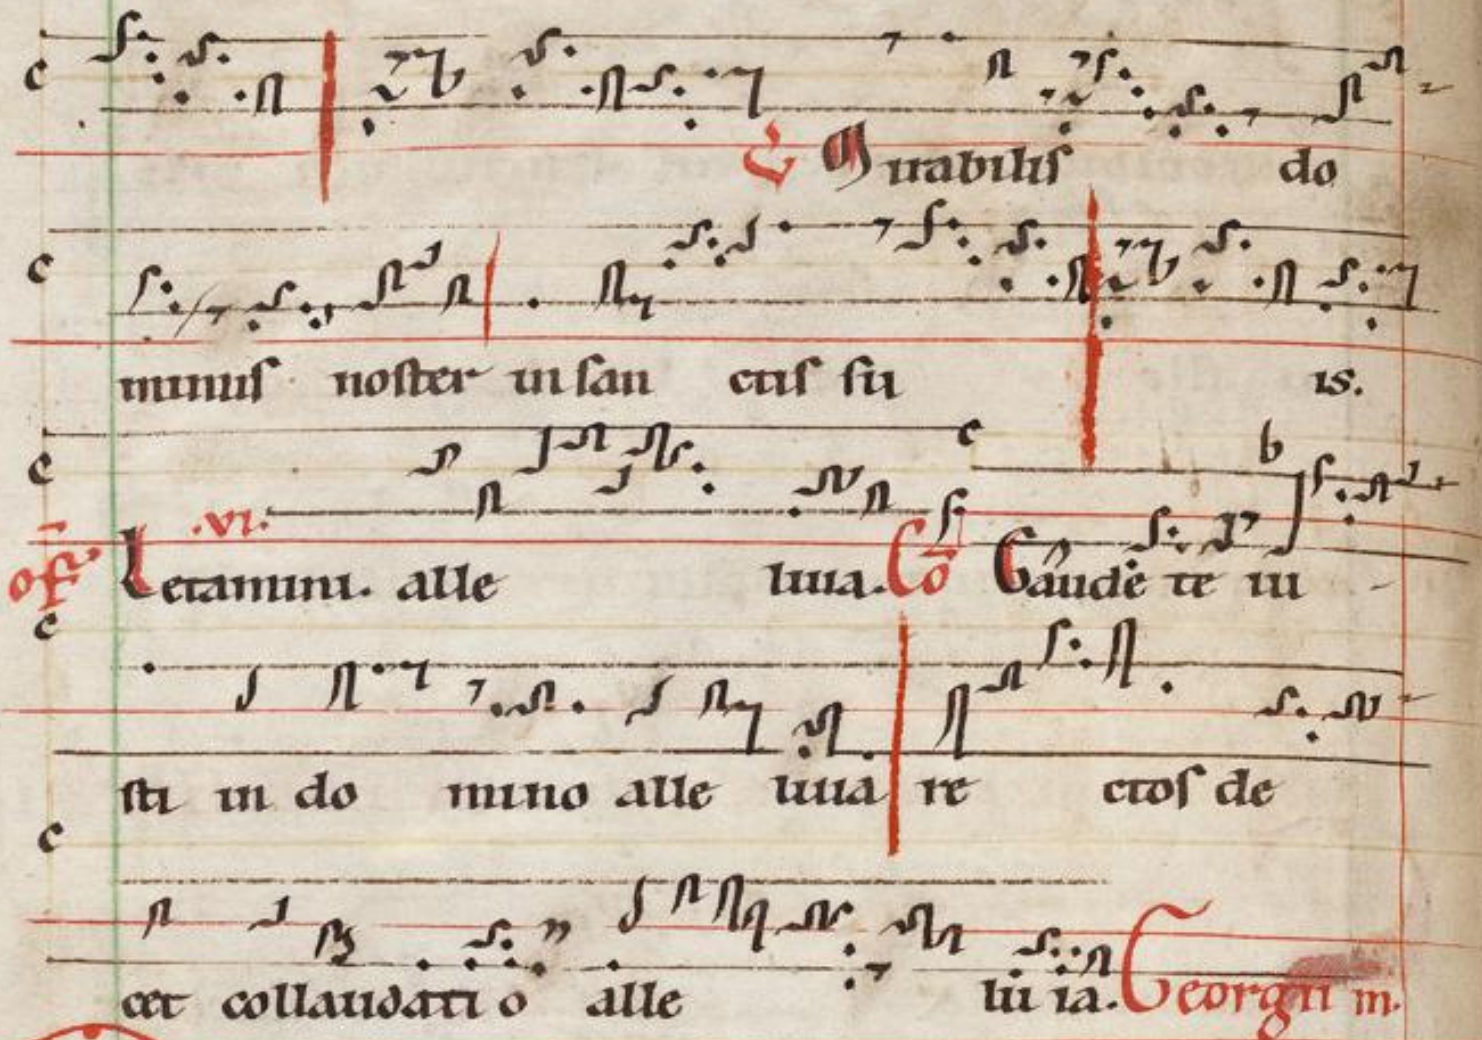 Mirabilis do
minus noster in san ctis su is.
of .vi. Letamini. alle luia. Co Gaude te iu
sti in do mino alle luia re ctos de
cet collaudati o alle lu ia. Georgii m.